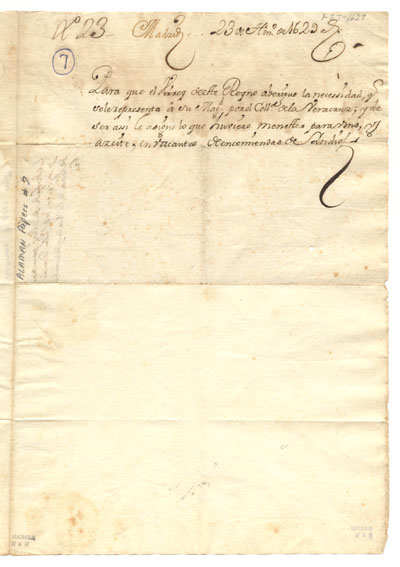 1-23-1629
Nº 23 Madrid 23 de Enº de 1629
7
Para que el Virrey deste Reyno aberigue la necessidad, q
se le representa à su Mag. por el Collº de la Veracruz; y de
ser assi le asigne lo que huviere menester para vino, y
azeite, en vacantes de encomiendas de Indios
ALAMAN Papers # 7
GARCIA